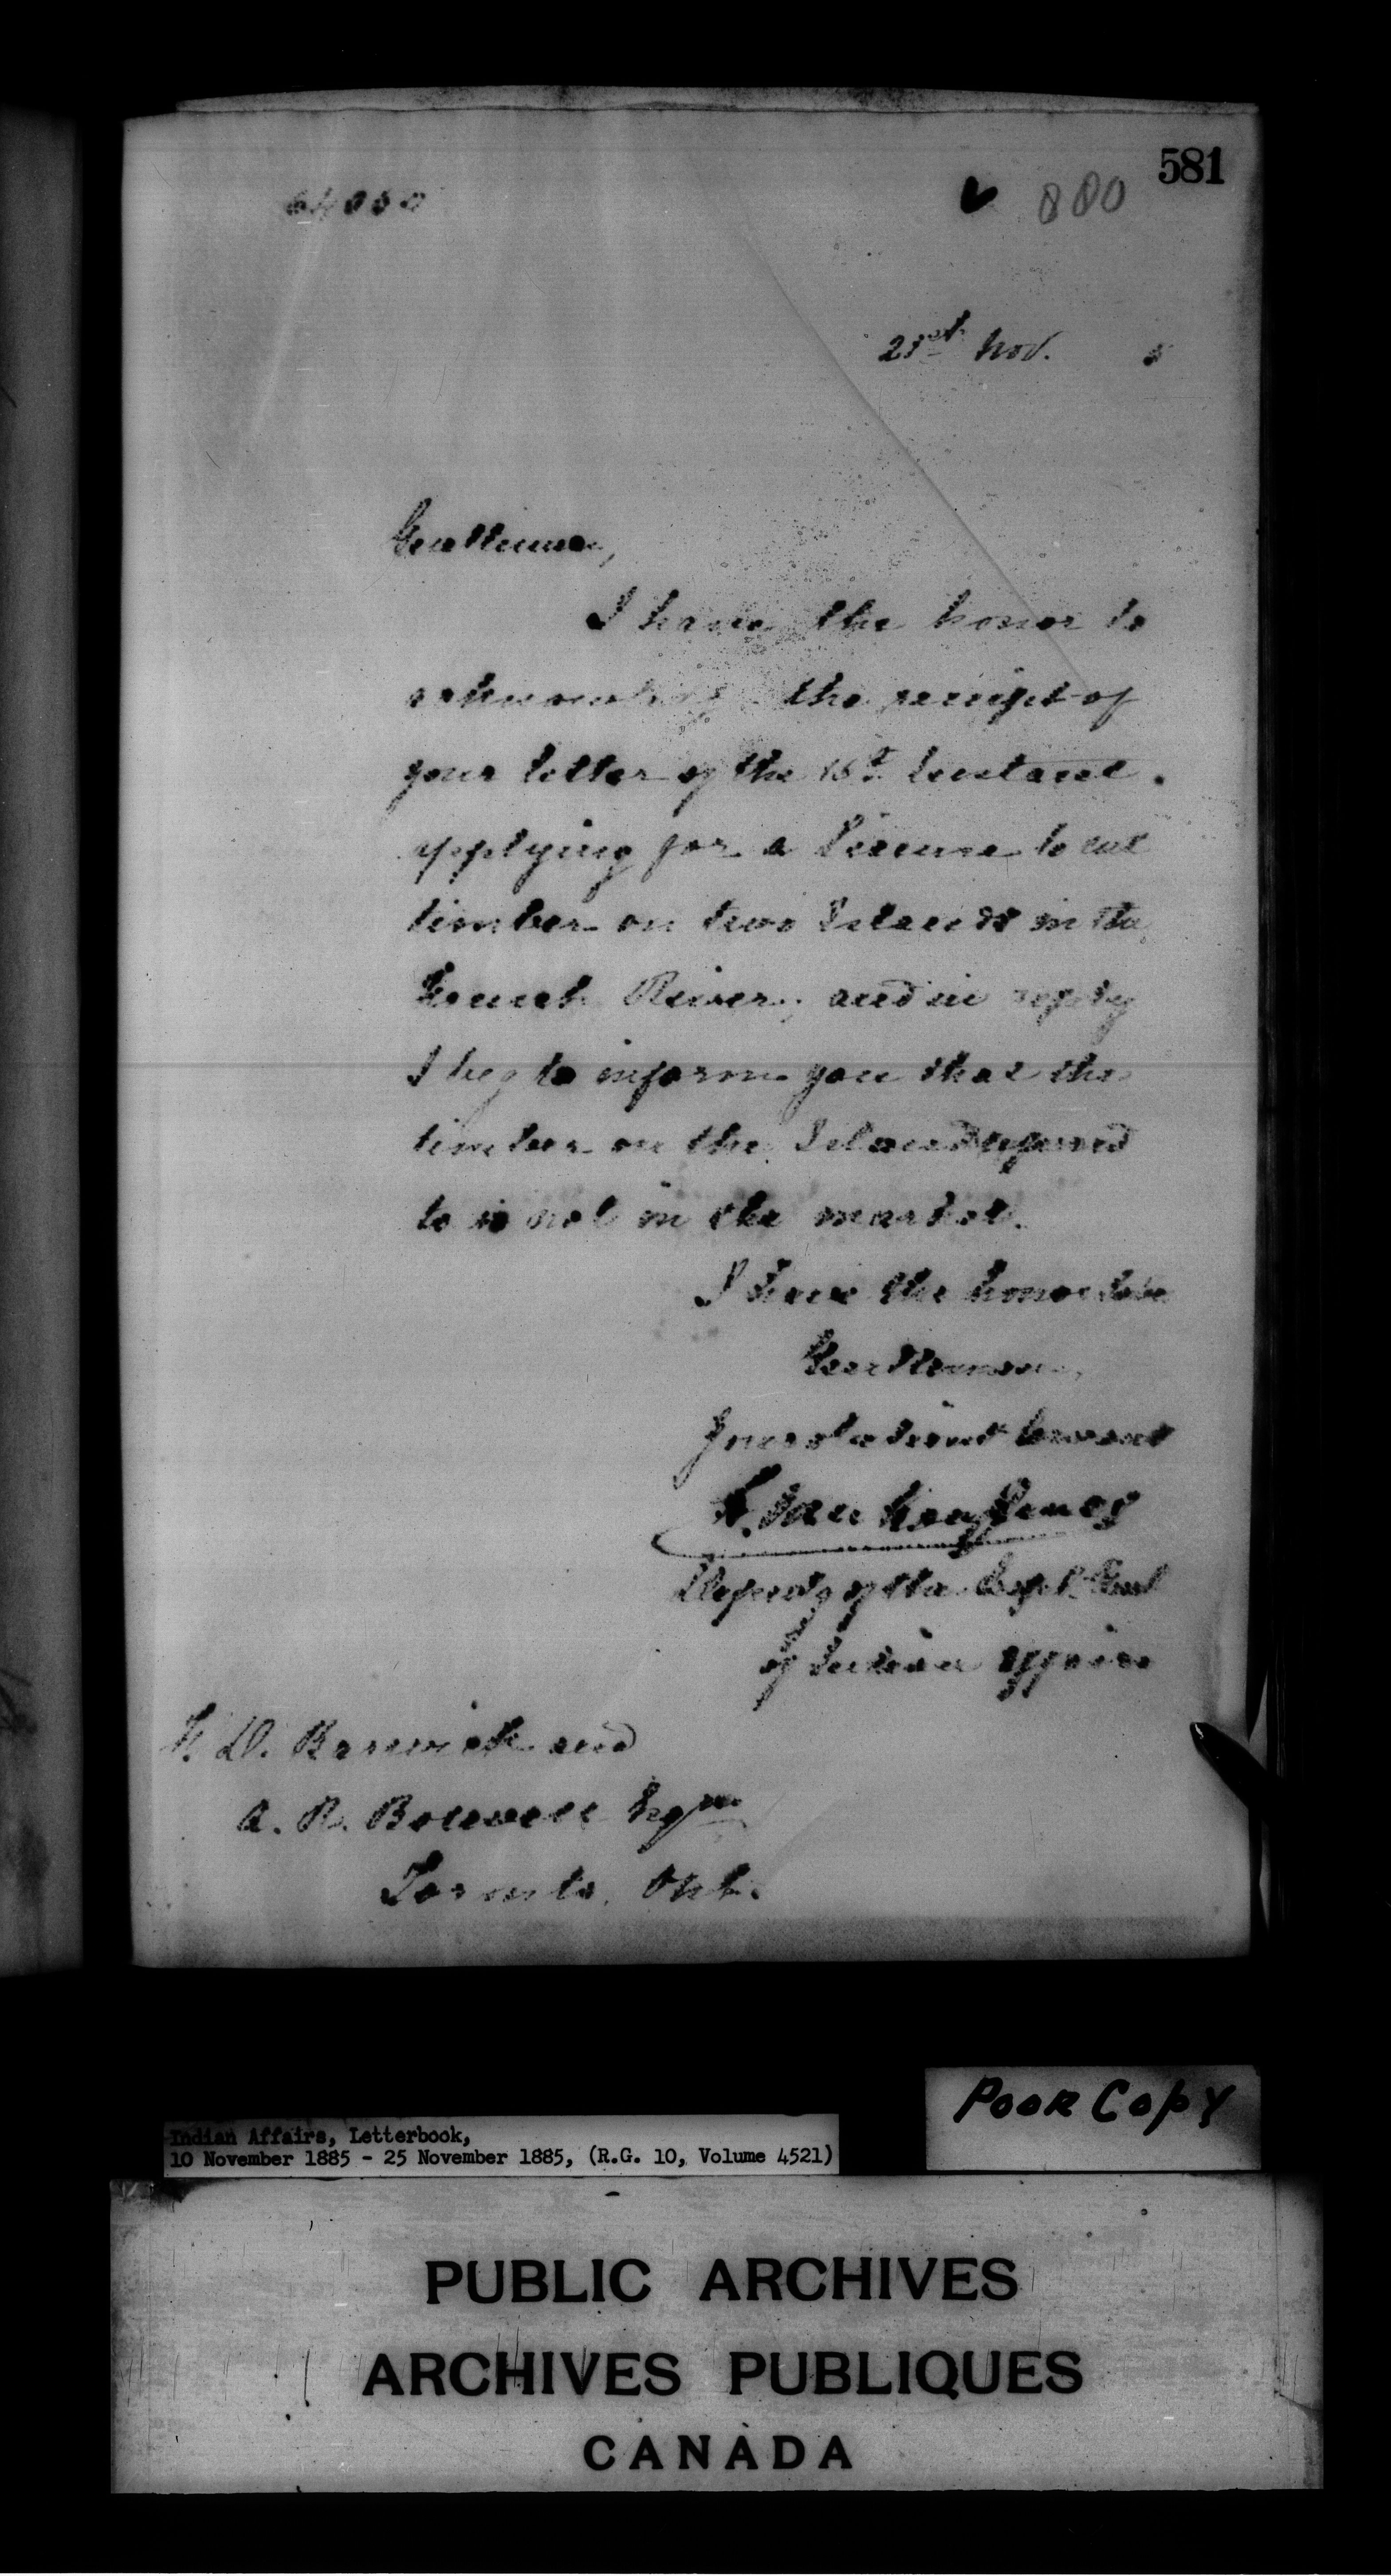 581
880
21st Nov. 5
Gentlemen,
I have the honor to
acknowledge the receipt of
your letter of the 16th Instant.
applying for a License to cut
timber on two Islands in the
French River, and in reply
I beg to inform you that the
timber on the Islands referred
to is not in the market.
I have the honor to be
Gentlemen,
Your obedient Servant
L. Van Koughnet
Deputy of the Supt. Genl
of Indian Affairs
D. Barwick and
A. R. Boswell Esqrs
Toronto, Ont.
POOR COPY
Indian Affairs, Letterbook,
10 November 1885 - 25 November 1885, (R.G. 10, Volume 4521)
PUBLIC ARCHIVES
ARCHIVES PUBLIQUES
CANADA